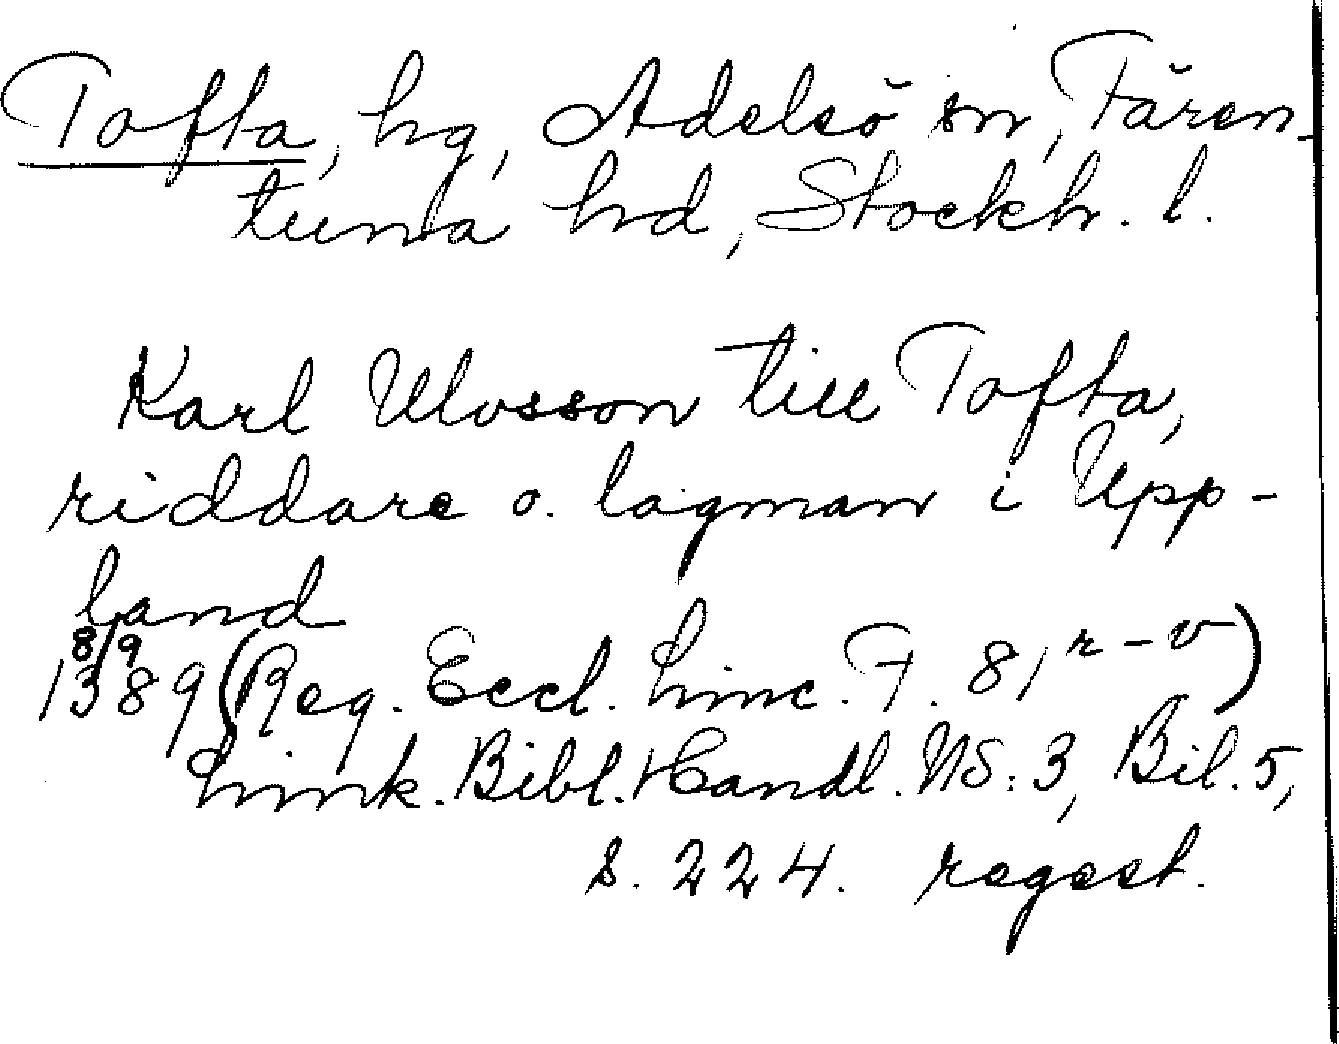 Tofta, hg, Adelsö sn, Fären-
tuna hd, Stockh. l.
Karl Ulvsson till Tofta,
riddare o. lagman i Upp-
land
8/9
1389 (Reg. Eccl. Linc. F. 81 r-v)
Link. Bibl. Handl. NS: 3, Bil. 5,
s. 224. regest.